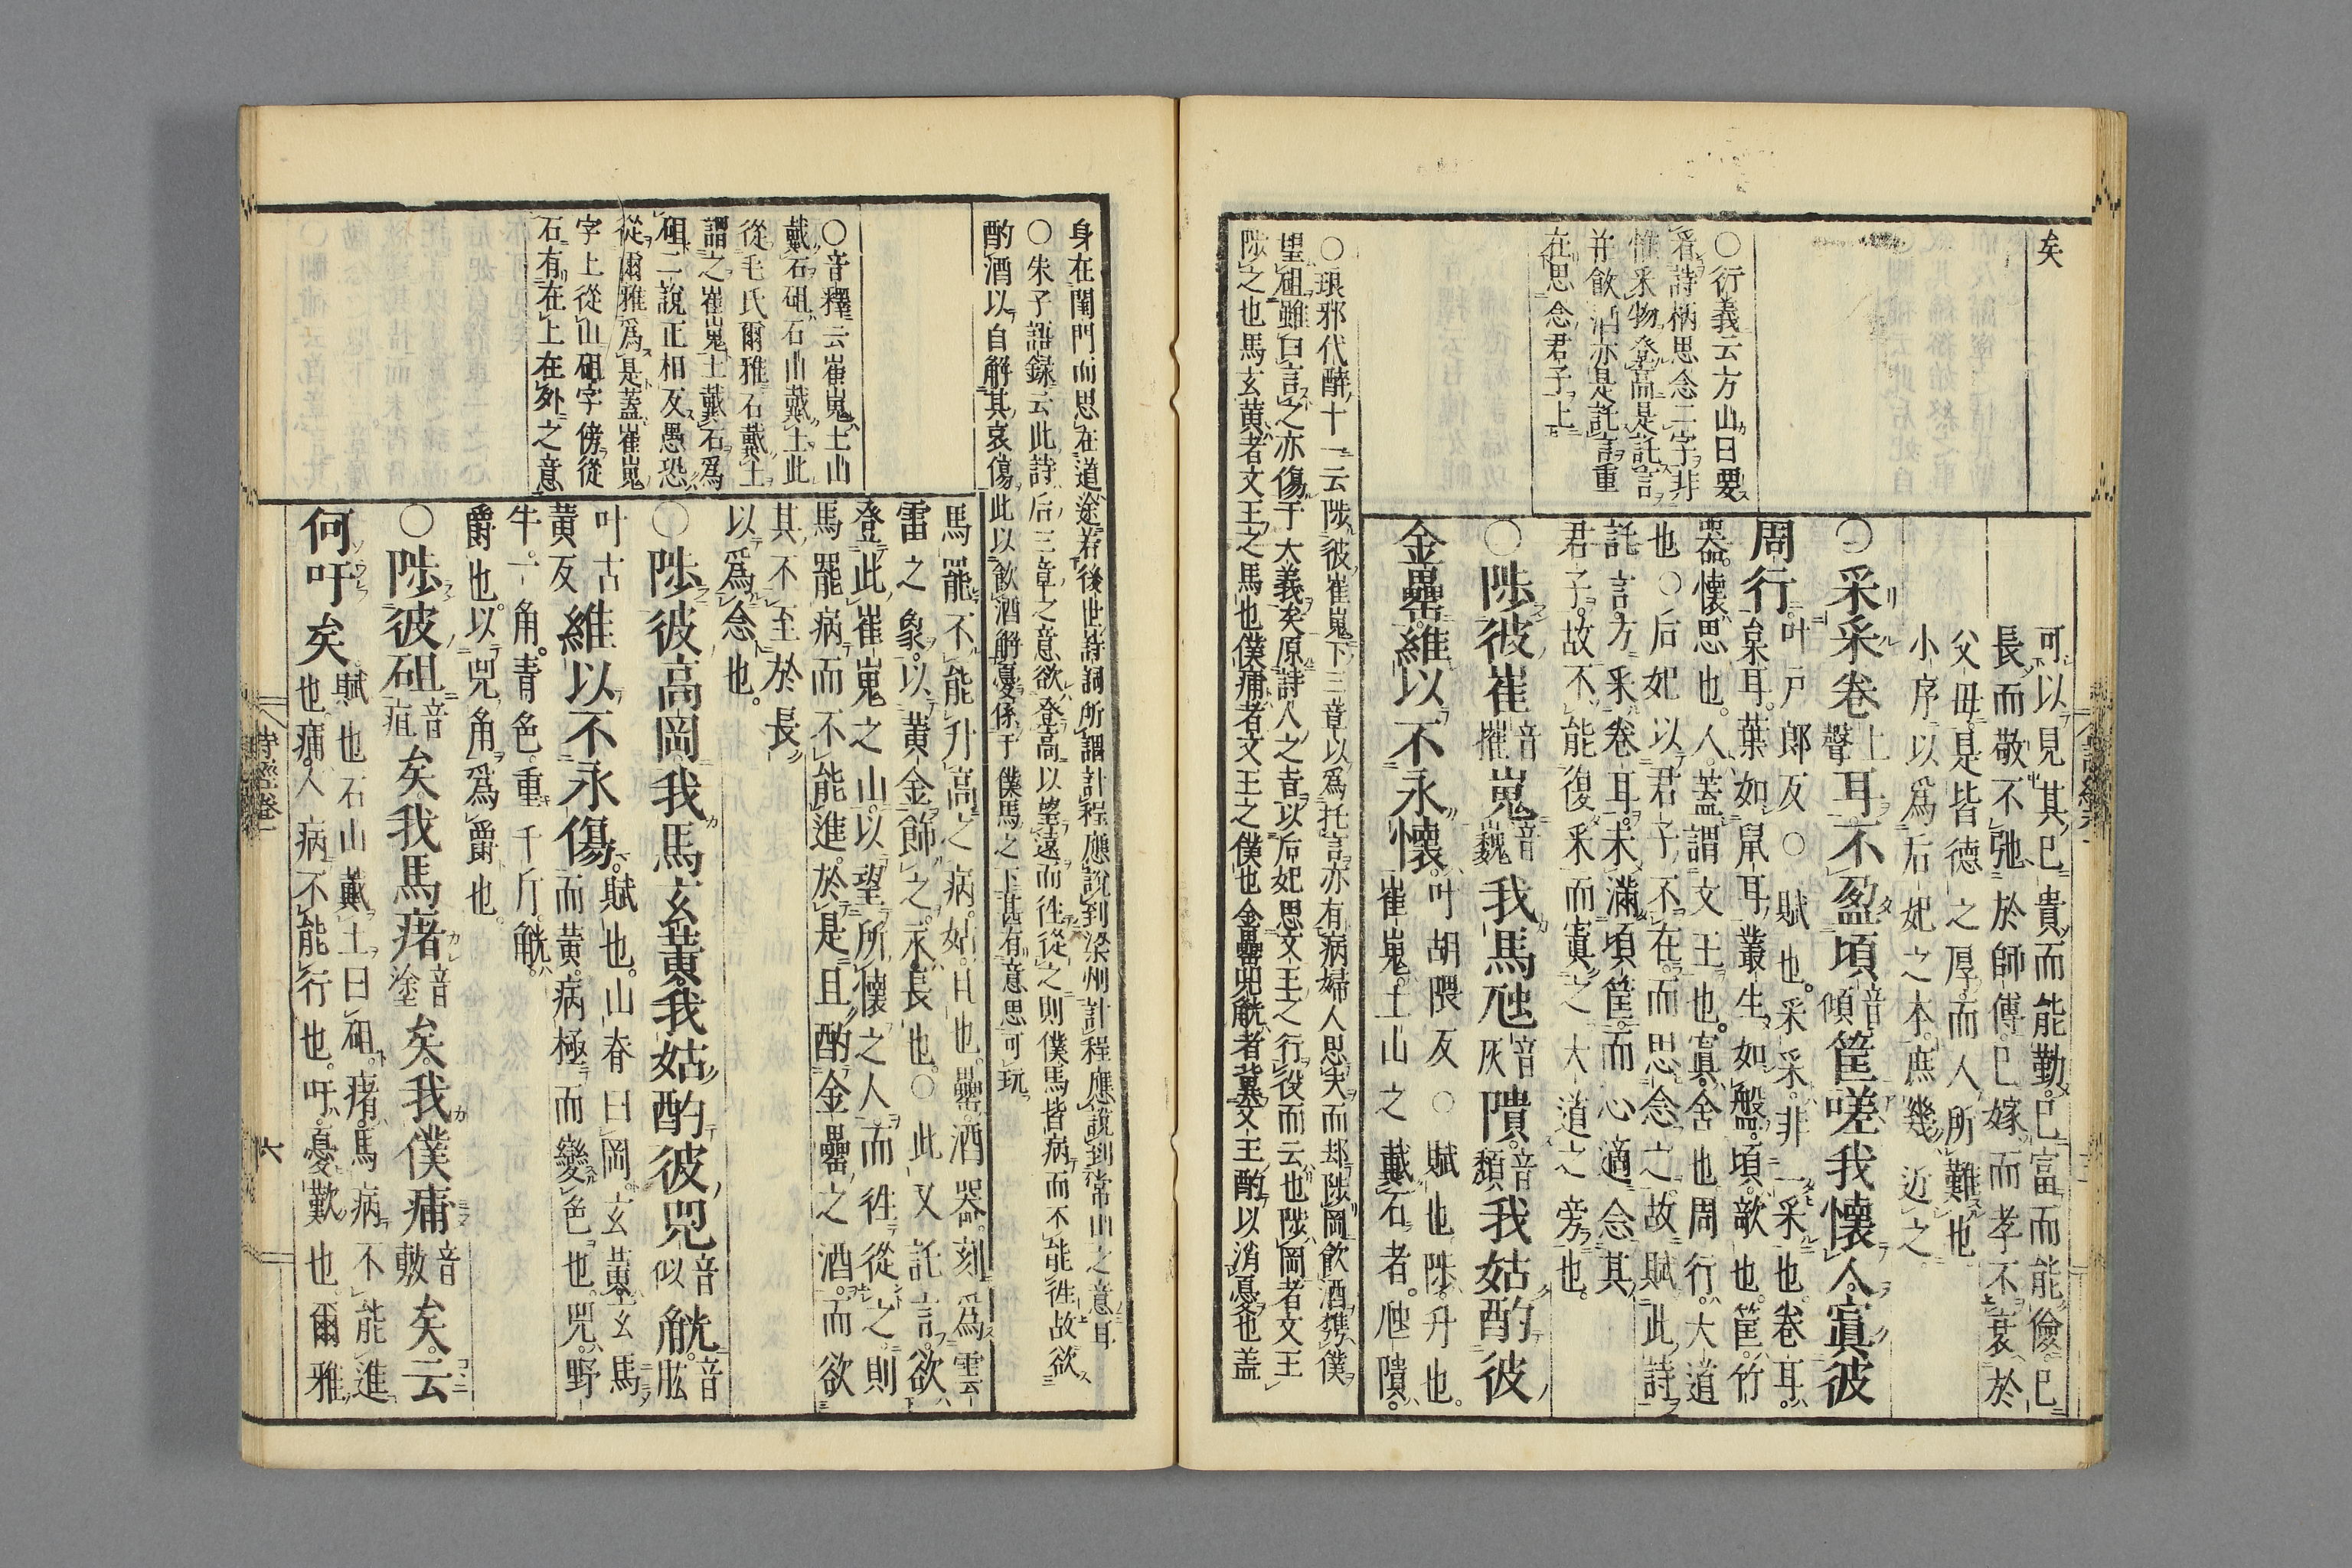 矣
○衍義云方山曰要
看詩柄思念二字非
惟采物登高是託言
并飲酒亦是託言重
在思念君子上
可以見其已貴而能勤已富而能儉已
長而敬不弛於師傅已嫁而孝不衰於
父母是皆德之厚而人所難也
小序以爲后妃之本庶幾近之
○采采卷上聲耳不盈頃音傾筐嗟我懷人寘彼
周行叶戸郎反○賦也采采非一采也卷耳
枲耳葉如鼠耳叢生如盤頃欹也筐竹
器懷思也人蓋謂文王也寘舍也周行大道
也○后妃以君子不在而思念之故賦此詩
託言方采卷耳未滿頃筐而心適念其
君子故不能復采而寘之大道之旁也
○陟彼崔音摧嵬音巍我馬虺音灰隤音頹我姑酌彼
金罍維以不永懷叶胡隈反○賦也陟升也
崔嵬土山之戴石者虺隤
○琅邪代醉十一云陟彼崔嵬下三章以爲托言亦有病婦人思夫而却陟岡飲酒携僕
望砠雖曰言之亦傷于大義矣原詩人之旨以后妃思文王之行役而云也陟岡者文王
陟之也馬玄黄者文王之馬也僕痡者文王之僕也金罍兕觥者冀文王酌以消憂也盖
身在閨門而思在道途若後世詩詞所謂計程應說到梁州計程應說到常山之意耳
○朱子語録云此詩后三章之意欲登高以望遠而徃從之則僕馬皆病而不能徃故欲
酌酒以自解其哀傷此以飲酒解憂係于僕馬之下甚有意思可玩
○音釋云崔嵬土山
戴石砠石山戴土此
從毛氏爾雅石戴土
謂之崔嵬土戴石爲
砠二說正相反愚恐
從爾雅爲是蓋崔嵬
字上從山砠字傍從
石有在上在外之意
馬罷不能升高之病姑且也罍酒器刻爲雲
雷之象以黄金飾之永長也○此又託言欲
登此崔嵬之山以望所懷之人而徃從之則
馬罷病而不能進於是且酌金罍之酒而欲
其不至於長
以爲念也
○陟彼高岡我馬玄黄我姑酌彼兕音似觥音肱
叶古
黄反維以不永傷賦也山脊曰岡玄黄玄馬
而黄病極而變色也兕野
牛一角青色重千斤觥
爵也以兕角爲爵也
○陟彼砠音疽矣我馬瘏音塗矣我僕痡音敷矣云
何吁矣賦也石山戴土曰砠瘏馬病不能進
也痡人病不能行也吁憂歎也爾雅
詩經卷一
六